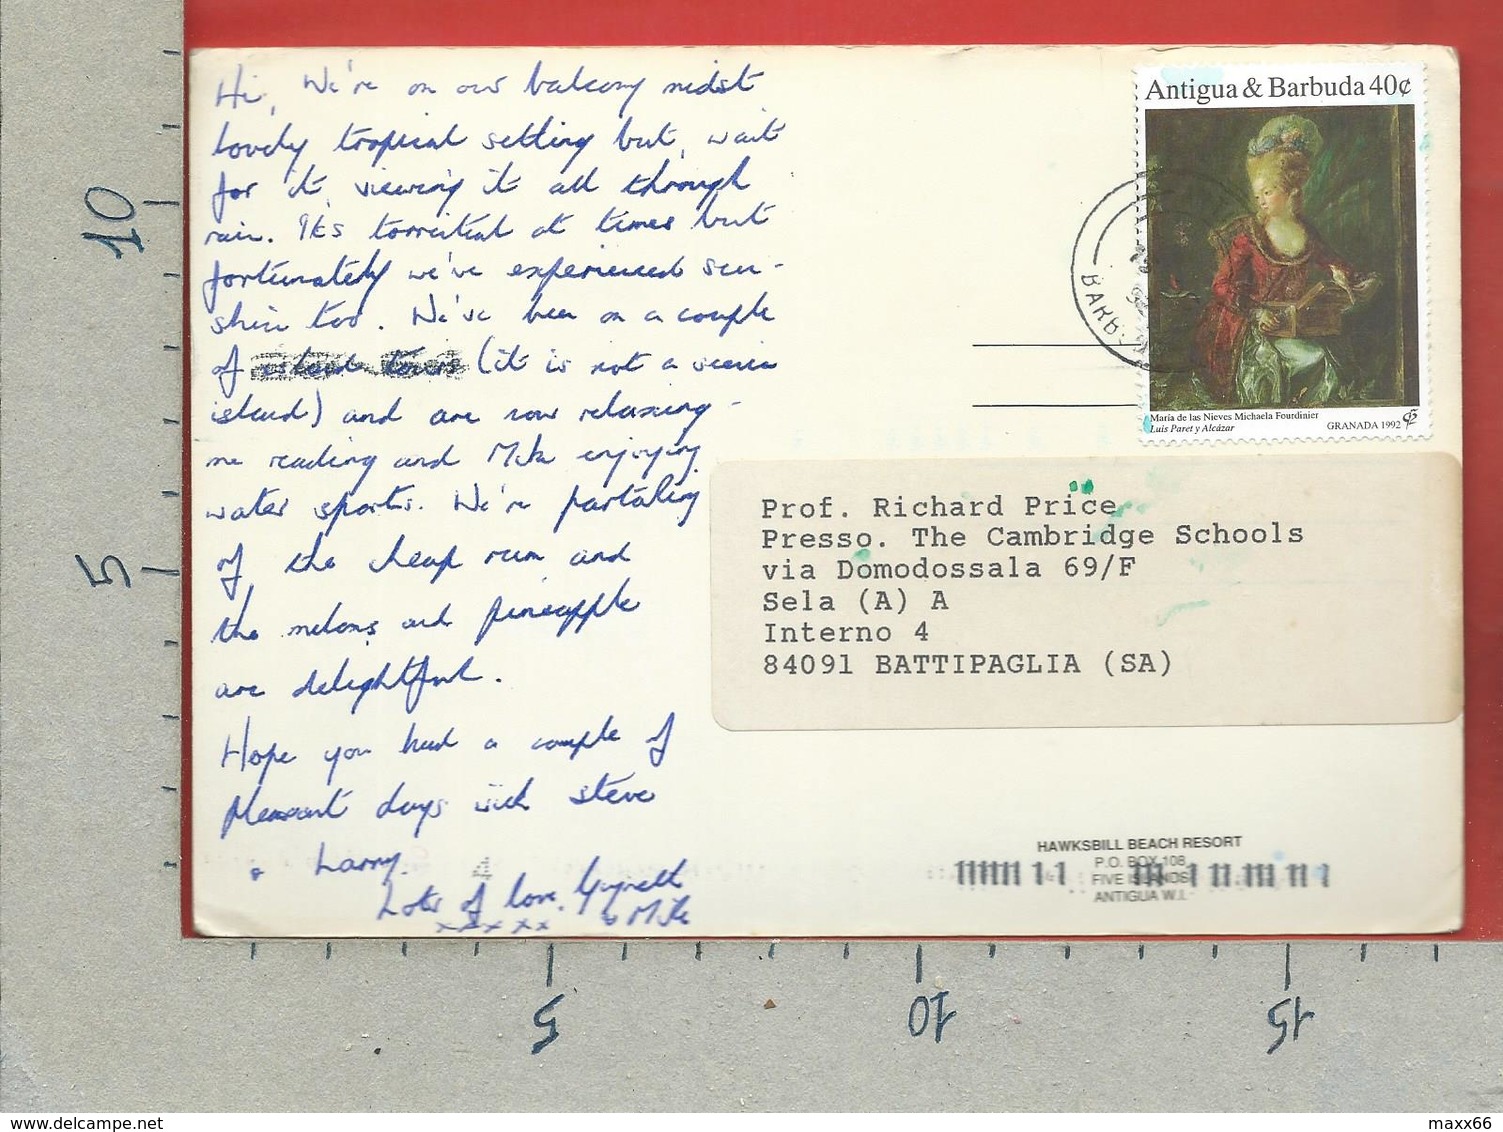 Hi, We're on our balcony midst
lovely tropical setting but, wait
for it, viewing it all through
rain. It's torrential at times but
fortunately we've experienced sun-
shine too. We've been on a couple
of island tours (it is not a scenic
island) and are now relaxing -
me reading and Mike enjoying
water sports. We're partaking
of the cheap rum and
the melons and pineapple
are delightful.
Hope you had a couple of
pleasant days with Steve
& Larry.
Lots of love, Gwyneth
& Mike
xxxxx
Antigua & Barbuda 40¢
María de las Nieves Michaela Fourdinier
Luis Paret y Alcázar
GRANADA 1992
Prof. Richard Price
Presso. The Cambridge Schools
via Domodossala 69/F
Sela (A) A
Interno 4
84091 BATTIPAGLIA (SA)
4
HAWKSBILL BEACH RESORT
P.O. BOX 108
FIVE ISLANDS
ANTIGUA W.I.
10
5
5
10
15
delcampe.net
maxx66